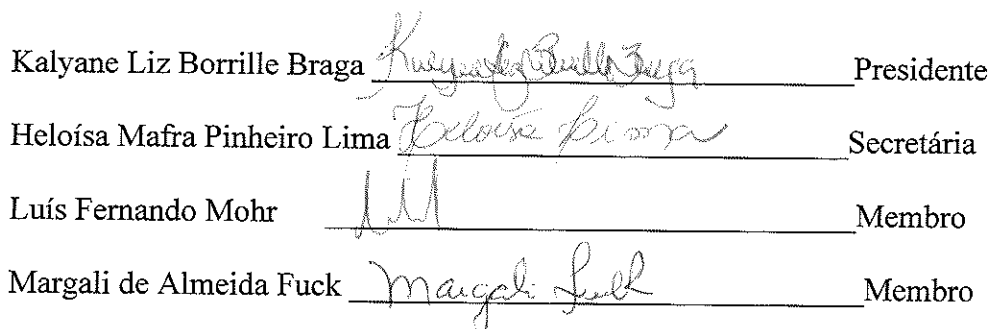 Kalyane Liz Borrille Braga Kalyane Liz Borrille Braga Presidente
Heloísa Mafra Pinheiro Lima Heloisa Lima Secretária
Luís Fernando Mohr Membro
Margali de Almeida Fuck Margali Fuck Membro